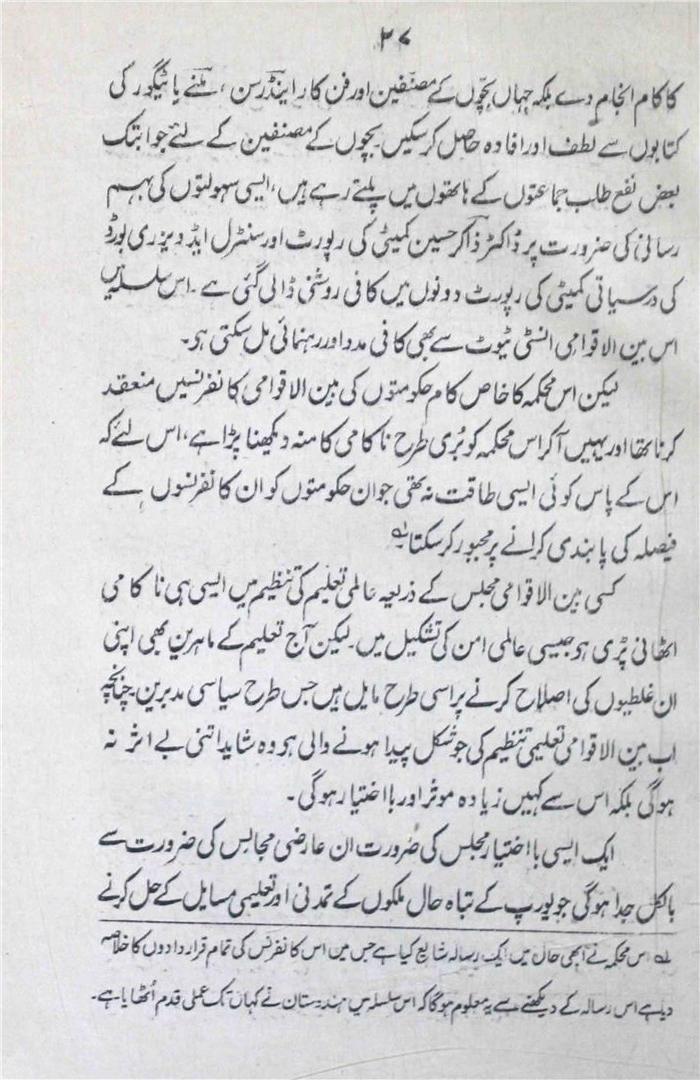 ۳۷
کا کام انجام دے بلکہ جہاں بچّوں کے مصنّفین اور فن کار اینڈرسن، ملنے یا ٹیگور کی
کتابوں سے لطف اور افادہ حاصل کرسکیں۔ بچوں کے مصنفین کے لئے جو ابتک
بعض نفع طلب جماعتوں کے ہاتھوں میں پلتے رہے ہیں، ایسی سہولتوں کی بہم
رسانی کی ضرورت پر ڈاکٹر ذاکر حسین کمیٹی کی رپورٹ اور سنٹرل ایڈویزری بورڈ
کی درمیانی کمیٹی کی رپورٹ دونوں میں کافی روشنی ڈالی گئی ہے۔ اس سلسلہ میں
اس بین الاقوامی انسٹی ٹیوٹ سے بھی کافی مدد اور رہنمائی مل سکتی ہو۔
لیکن اس محکمہ کا خاص کام حکومتوں کی بین الاقوامی کانفرنسیں منعقد
کرنا تھا اور یہیں آکر اس محکمہ کو بُری طرح ناکامی کا منہ دیکھنا پڑا ہے، اس لئے کہ
اس کے پاس کوئی ایسی طاقت نہ تھی جو ان حکومتوں کو ان کانفرنسوں کے
فیصلہ کی پابندی کرانے پر مجبور کرسکتا۔ لہ
کسی بین الاقوامی مجلس کے ذریعہ عالمی تعلیم کی تنظیم میں ایسی ہی ناکامی
اٹھانی پڑی ہو جیسی عالمی امن کی تشکیل میں۔ لیکن آج تعلیم کے ماہرین بھی اپنی
ان غلطیوں کی اصلاح کرنے پر اسی طرح مایل ہیں جس طرح سیاسی مدبرین۔ چنانچہ
اب بین الاقوامی تعلیمی تنظیم کی جو شکل پیدا ہونے والی ہو وہ شاید اتنی بے اثر نہ
ہوگی بلکہ اس سے کہیں زیادہ موثر اور بااختیار ہوگی۔
ایک ایسی بااختیار مجلس کی ضرورت ان عارضی مجالس کی ضرورت سے
بالکل جدا ہوگی جو یورپ کے تباہ حال ملکوں کے تمدنی اور تعلیمی مسایل کے حل کرنے
لہ اس محکمہ نے ابھی حال میں ایک رسالہ شایع کیا ہے جس میں اس کانفرنس کی تمام قراردادوں کا خلاصہ
دیا ہے اس رسالہ کے دیکھنے سے یہ معلوم ہوگا کہ اس سلسلہ میں ہندستان نے کہاں تک عملی قدم اُٹھایا ہے۔